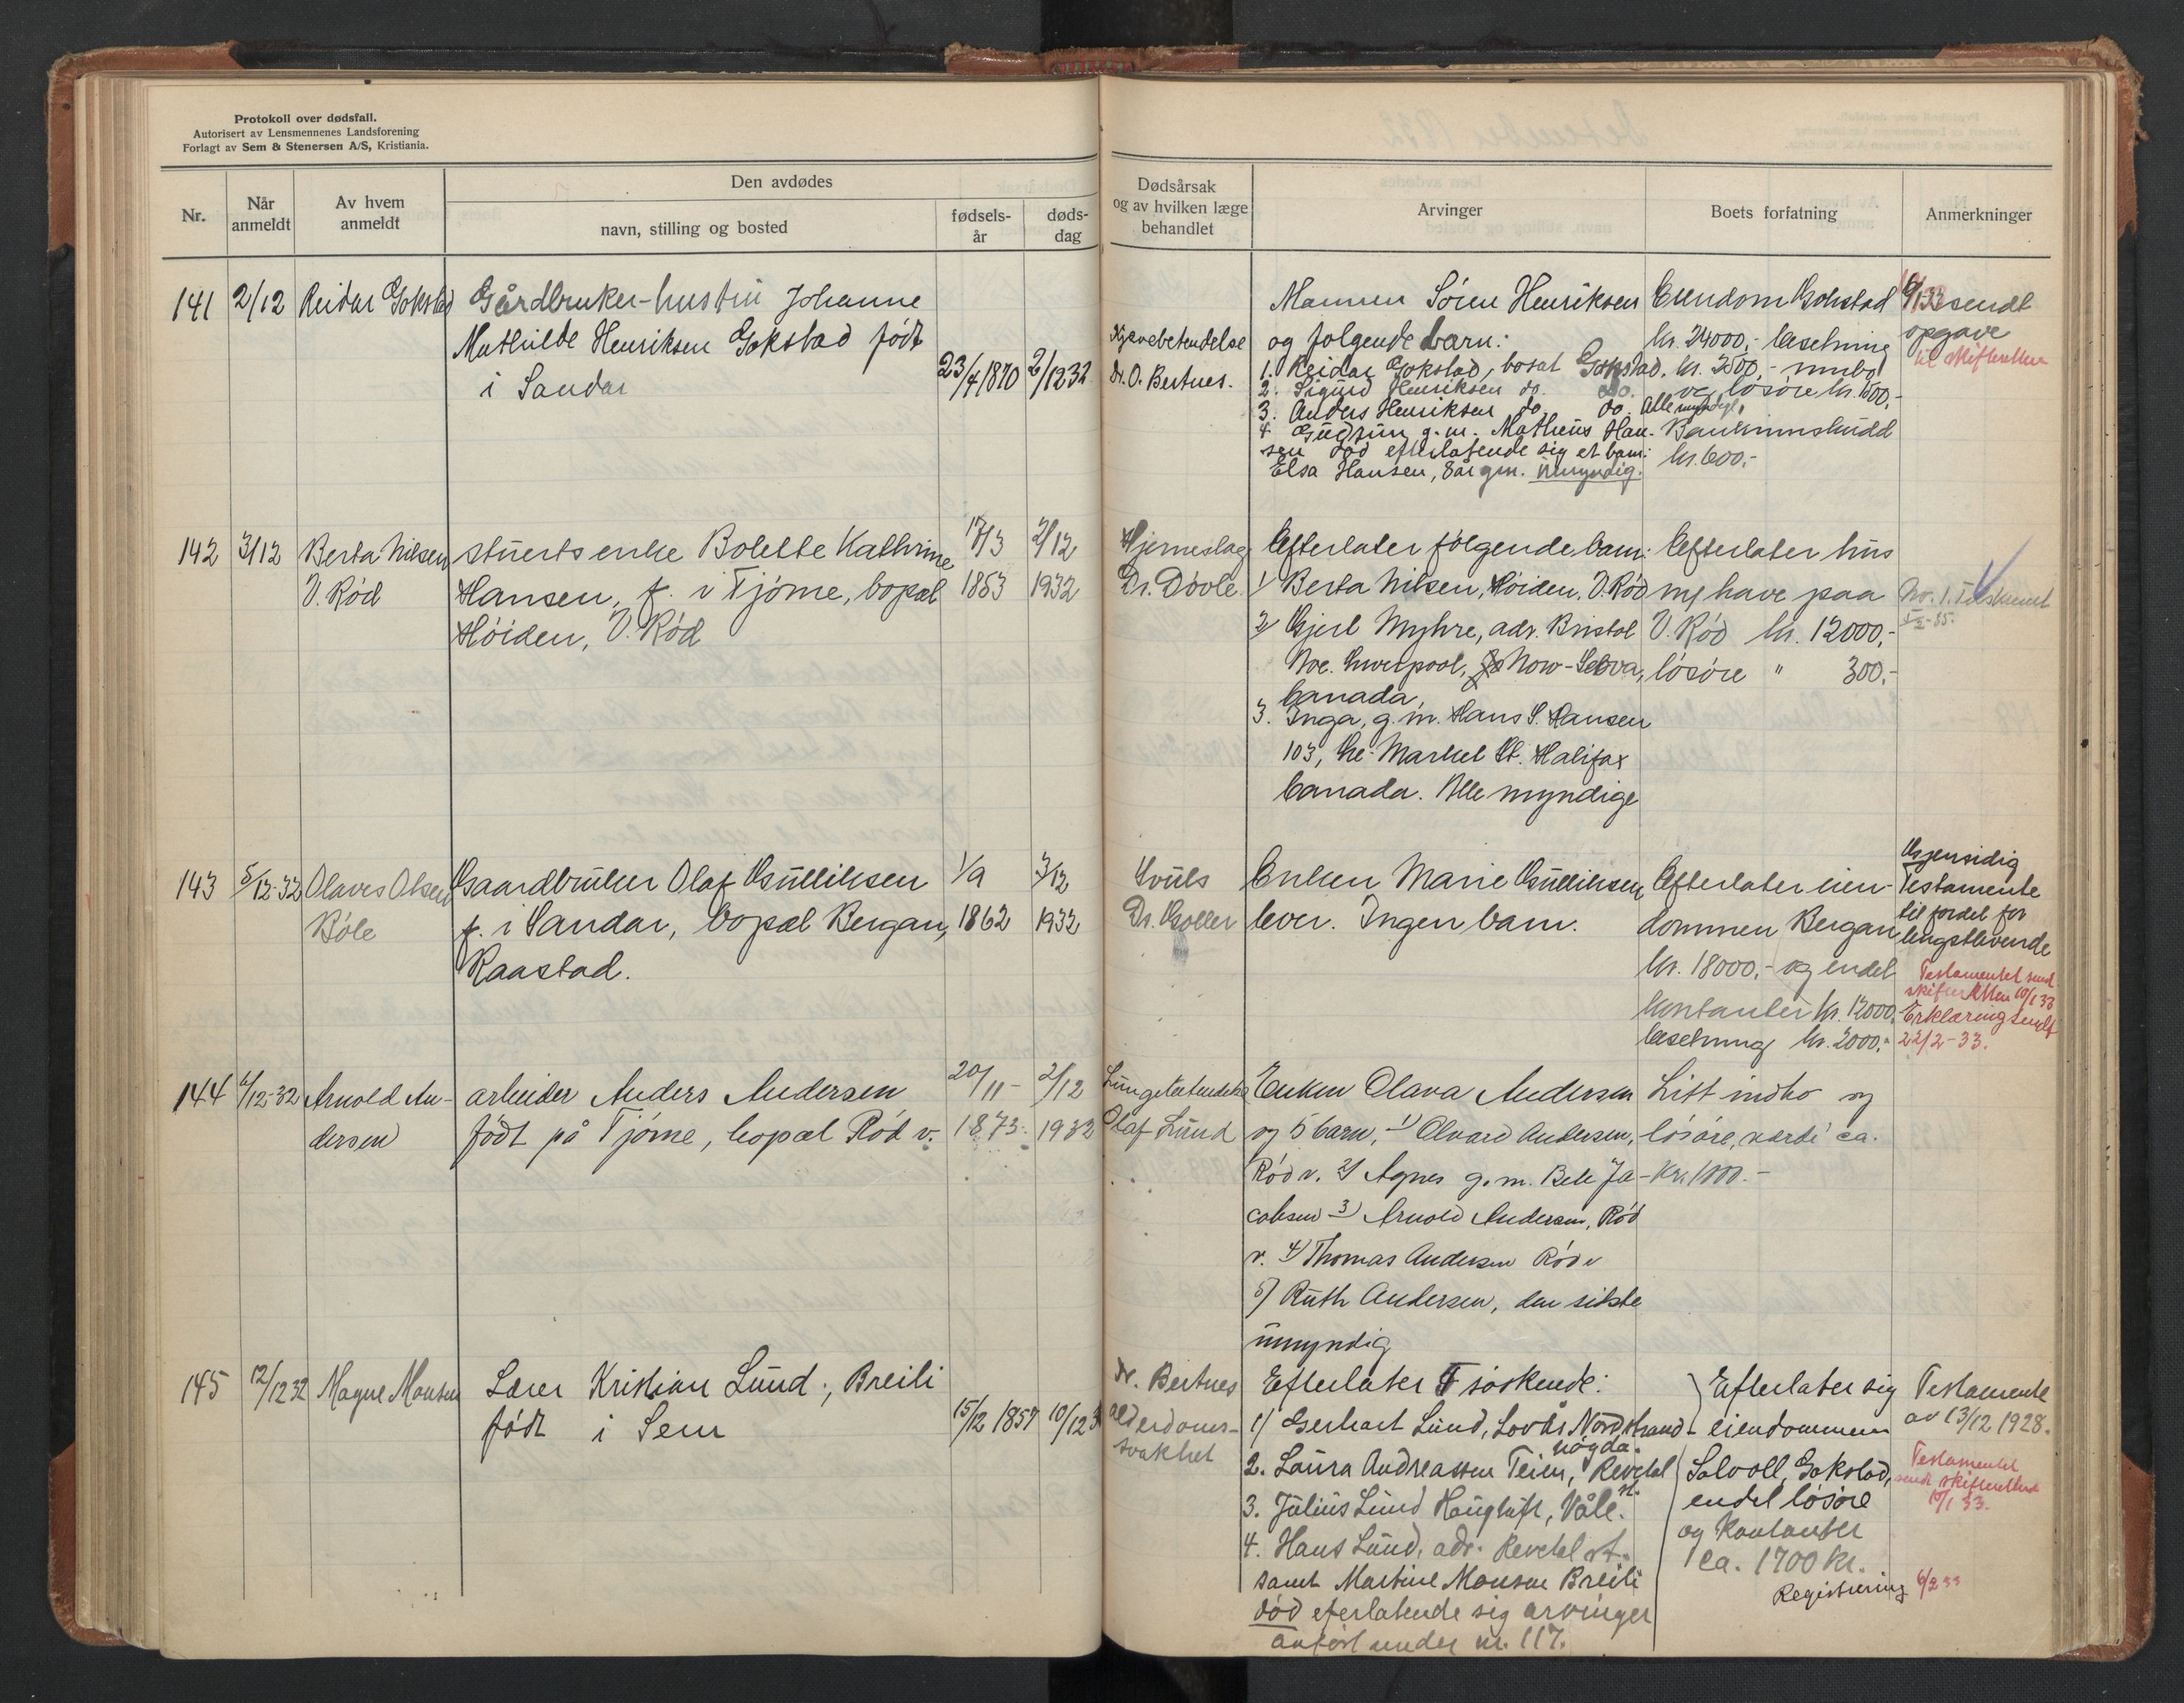 Protokoll over dødsfall.
Autorisert av Lensmennenes Landsforening
Forlagt av Sem & Stenersen A/S, Kristiania.
Nr.
Når anmeldt
Av hvem anmeldt
Den avdødes
navn, stilling og bosted
fødsels-år
døds-dag
Dødsårsak
og av hvilken læge
behandlet
Arvinger
Boets forfatning
Anmerkninger
141
2/12
Reidar Gokstad
Gårdbruker-hustru Johanne
Mathilde Henriksen Gokstad født
i Sandar
23/4 1870
2/12 32
Dr. O. Bertnes.
Mannen Sören Henriksen
og følgende barn:
1. Reidar Gokstad, bosat Gokstad.
2. Sigurd Henriksen do. do.
3. Anders Henriksen do. do. Alle myndige
4 Gudrun g. m. Matheus Han-
sen död efterlatende sig et barn:
Elsa Hansen, 8 år gm. Umyndig.
Eiendom Gokstad
kr. 24000,- besetning
kr. 2500,- innbo
og løsøre kr. 1500,-
Bankinnskudd
kr. 600,-
sendt
opgave
til skifteretten
142
3/12
Berta Nilsen
V. Rød
stuerts enke Bolette Kathrine
Hansen, f. i Tjøme, bopæl
Høiden, V. Rød
17/3
1853
2/12
1932
Hjerneslag
Dr. Dövle
Efterlater følgende barn:
1/ Berta Nilsen, Høiden, V. Rød
2/ Gjerl Myhre, adr. Bristol
Ave. Liverpool, Now-Scova,
Canada,
3. Inga, g. m. Hans S. Hansen
103, Market St. Halifax
Canada. Alle myndige
Efterlater hus
m/ have paa
V. Rød kr. 12000,-
løsøre " 300,-
143
5/12-32
Olaves Olsen
Bøle
Gaardbruker Olaf Gulliksen
f. i Sandar, bopæl Bergan,
Raastad.
1/9
1862
3/12
1932
Dr. Goller
Enken Marie Gulliksen
lever. Ingen barn.
Efterlater eien-
dommen Bergan
kr. 18000,- og endel
kontanter kr. 12000,-
besetning kr. 2000,-
Gjensidig
Testamente
til fordel for
lengstlevende
Testamentet sendt
skifteretten 10/1 33
Erklæring sendt
22/2-33.
144
6/12-32
Arnold An-
dersen
arbeider Anders Andersen
født på Tjøme, bopæl Rød v.
20/11-
1873.
2/12
1932
Lungebetendelse
Olaf Lund
Enken Olava Andersen
og 5 barn, 1) Alvard Andersen,
Rød v. 2) Agnes g. m. Bele Ja-
cobsen 3) Arnold Andersen, Rød
v. 4) Thomas Andersen Rød v
5) Ruth Andersen, den sidste
umyndig
Litt indbo og
løsøre, verdi ca.
Kr. 1000.-
145
12/12 32
Magne Monsen
Lærer Kristian Lund, Breili
født i Sem
15/12 1857
10/12 3
Dr. Bertnes
alderdoms-
svakhet
Efterlater 5 søskende:
1) Gerhart Lund, Lovås Nordstrand
høgda.
2. Laura Andreassen Teien, Revetal
st.
3. Julius Lund Haugtuft, Våle.
4. Hans Lund, adr. Revetal st.
samt Martine Monsen Breili
død efterlatende sig arvinger
anført under nr. 117.
Efterlater sig
eiendommen
Solvoll, Gokstad,
endel løsøre
og kontanter
ca. 1700 kr.
Registrering 6/2 33
Testamente
av 13/12 1928.
Testamentet
sendt skifteretten
10/1 33.